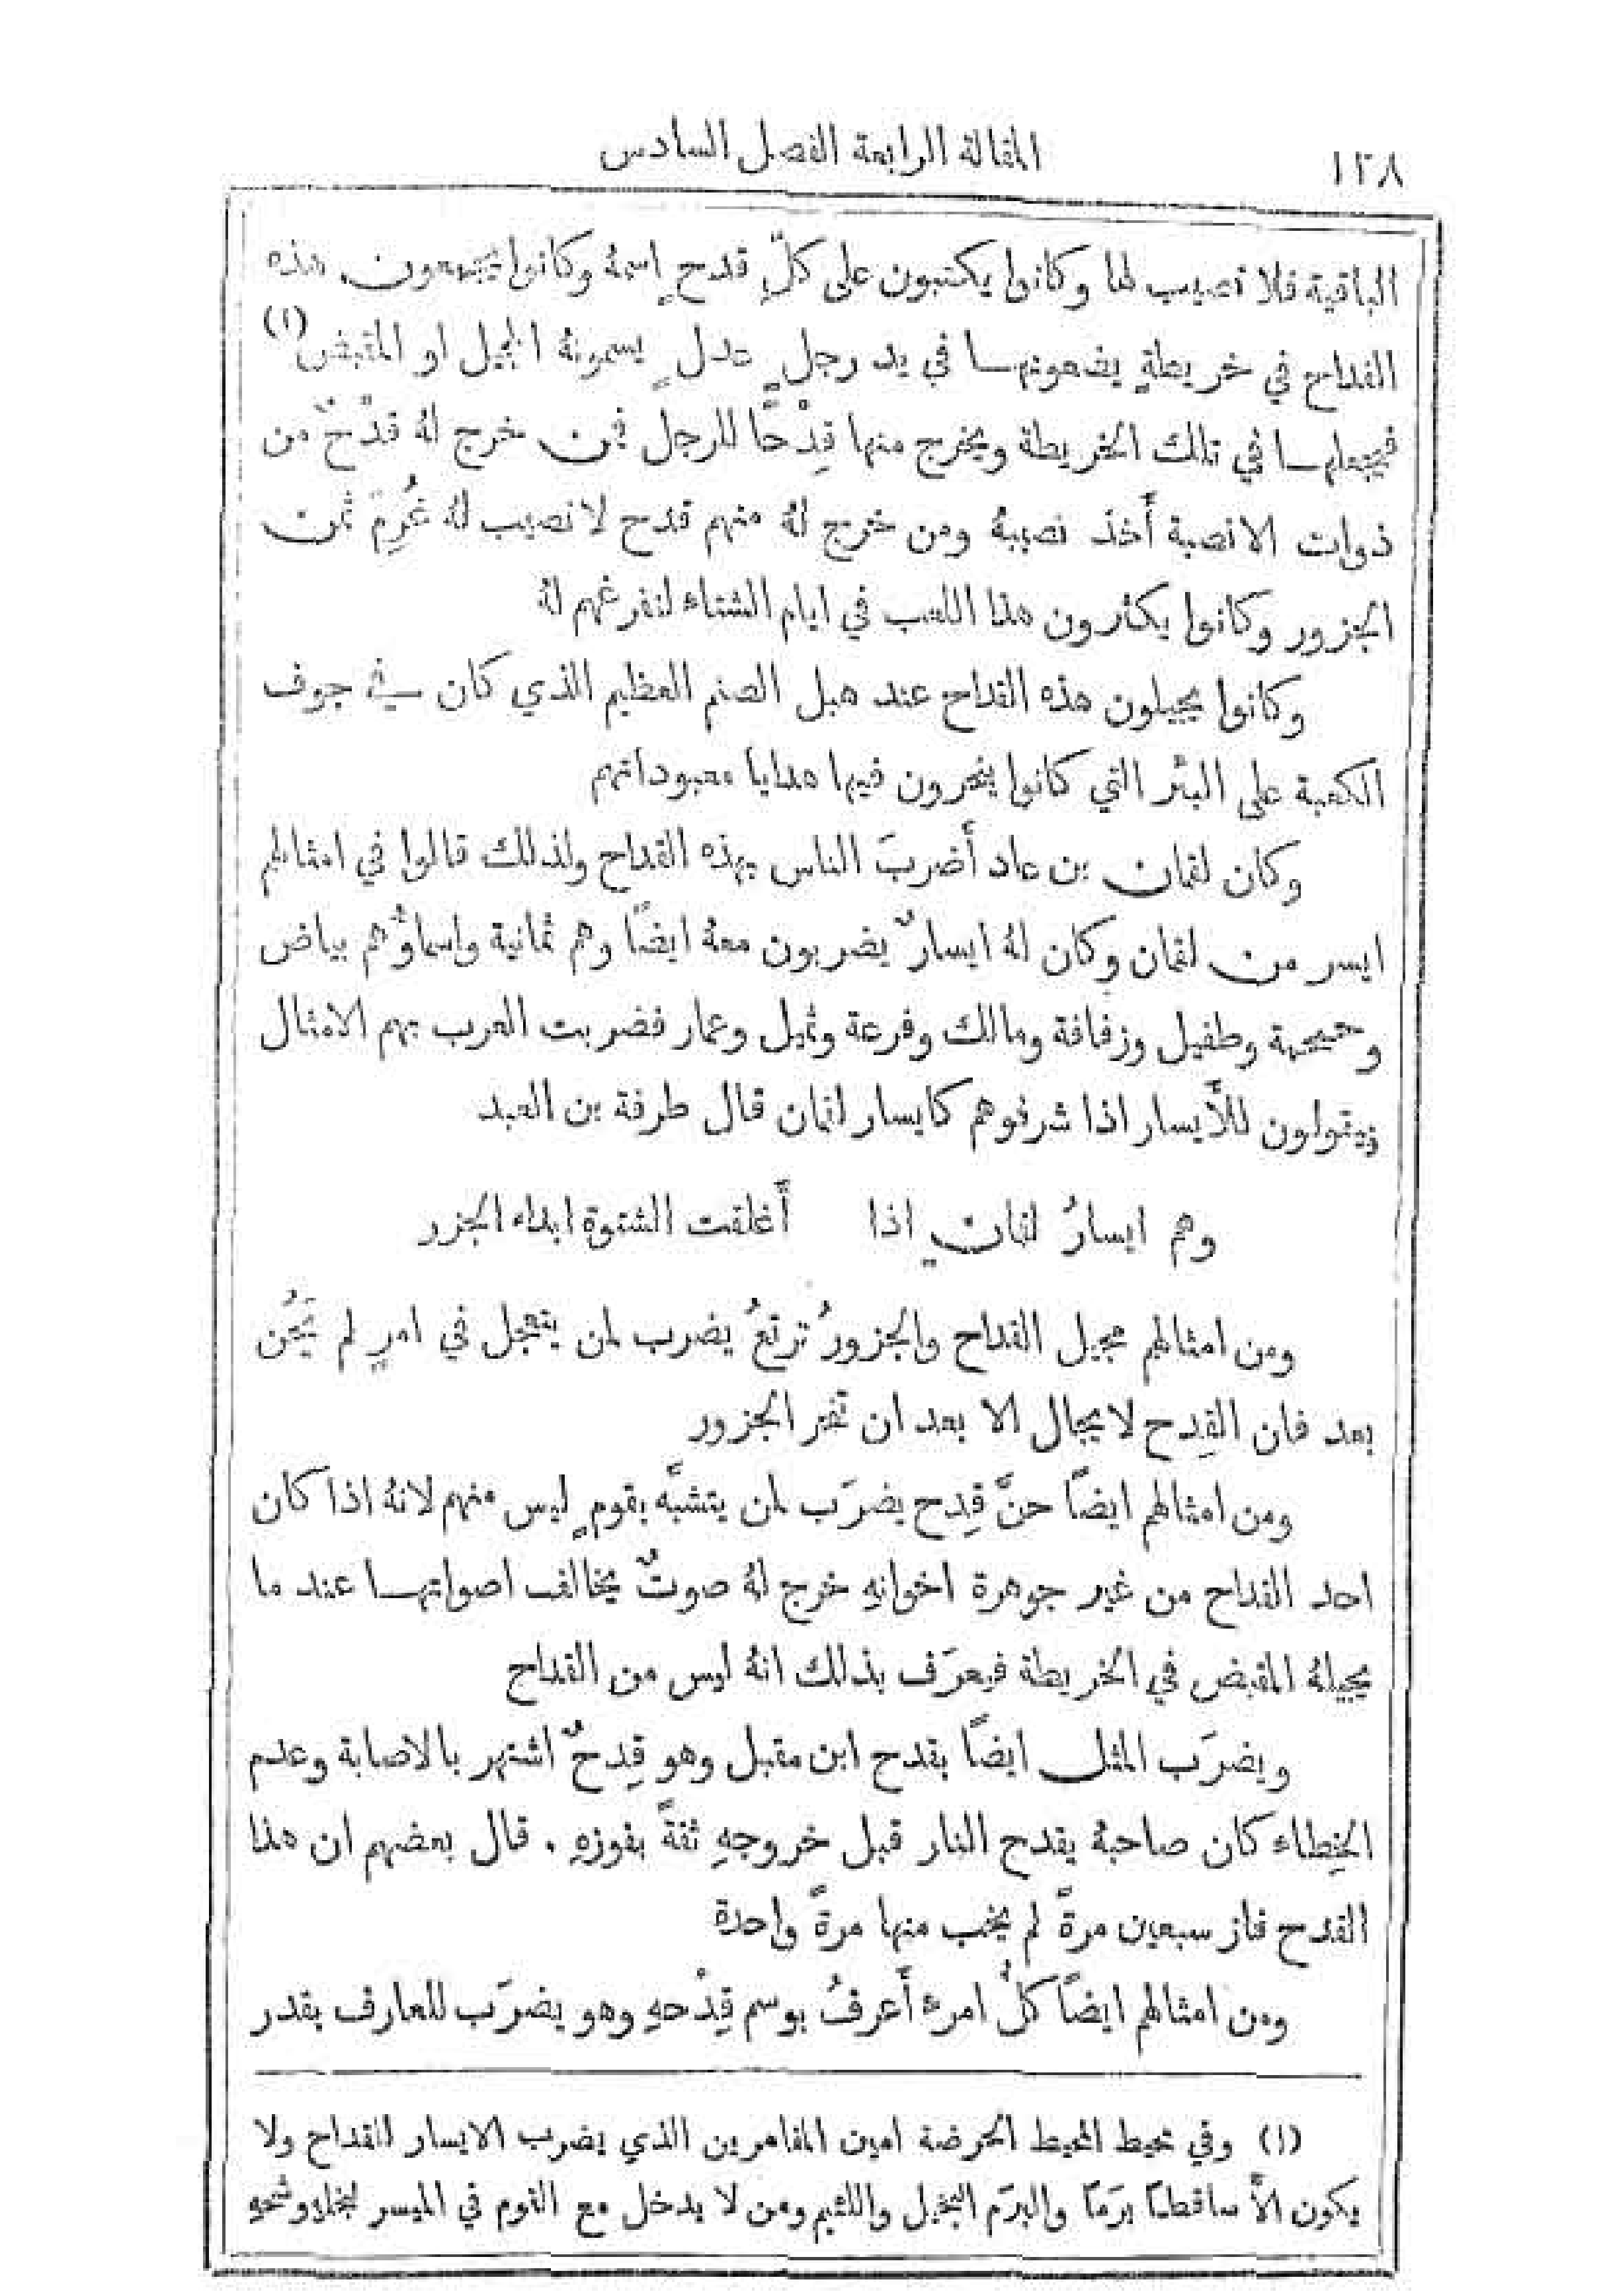 ١٢٨
المقالة الرابعة الفصل السادس
الباقية فلا نصيب لها وكانوا يكتبون على كلّ قدحٍ اسمهُ وكانوا يجمعون هذه
القداح في خريطةٍ يضعونها في يد رجلٍ عدلٍ يسمونهُ المجيل او المقبض (١)
فيجعلها في تلك الخريطة ويخرج منها قِدْحًا للرجل فمن خرج لهُ قدْحٌ من
ذوات الانصبة أخذ نصيبهُ ومن خرج لهُ منهم قدح لا نصيب لهُ غُرِمَ ثمن
الجزور وكانوا يكثرون هذا اللعب في ايام الشتاء لتفرغهم لهُ
وكانوا يجيلون هذه القداح عند هبل الصنم العظيم الذي كان في جوف
الكعبة على البئر التي كانوا ينحرون فيها هدايا معبوداتهم
وكان لقمان بن عاد أضربَ الناس بهذه القداح ولذلك قالوا في امثالهم
ايسر من لقمان وكان لهُ ايسارٌ يضربون معهُ ايضًا وهم ثمانية واسماؤُهم بياض
وحممة وطفيل وزفافة ومالك وفرعة وثميل وعمار فضربت العرب بهم الامثال
فيقولون للأَيسار اذا شرفوهم كايسار لقمان قال طرفة بن العبد
وهم ايسارُ لقمانٍ اذا أَغلقت الشتوة ابداء الجزر
ومن امثالهم مجيل القداح والجزورُ ترتعُ يضرب لمن يتعجل في امرٍ لم يَحُن
بعد فان القِدح لا يجال الا بعد ان تنحر الجزور
ومن امثالهم ايضًا حنَّ قِدح يضرَب لمن يتشبَّه بقومٍ ليس منهم لانهُ اذا كان
احد القداح من غير جوهرة اخوانهِ خرج لهُ صوتٌ يخالف اصواتها عند ما
يجيلهُ المقبض في الخريطة فيعرَف بذلك انهُ ليس من القداح
ويضرَب المثل ايضًا بقدح ابن مقبل وهو قِدحٌ اشتهر بالاصابة وعدم
الخِطاء كان صاحبهُ يقدح النار قبل خروجهِ ثقةً بفوزهِ . قال بعضهم ان هذا
القدح فاز سبعين مرةً لم يخب منها مرةً واحدة
ومن امثالهم ايضًا كلُّ امرءٍ أَعرفُ بوسم قِدْحهِ وهو يضرَب للعارف بقدر
(١) وفي محيط المحيط الحرضة امين المقامرين الذي يضرب الايسار القداح ولا
يكون الاَّ ساقطًا برَمًا والبرَم البخيل واللئيم ومن لا يدخل مع القوم في الميسر لبخلهِ وشحهِ